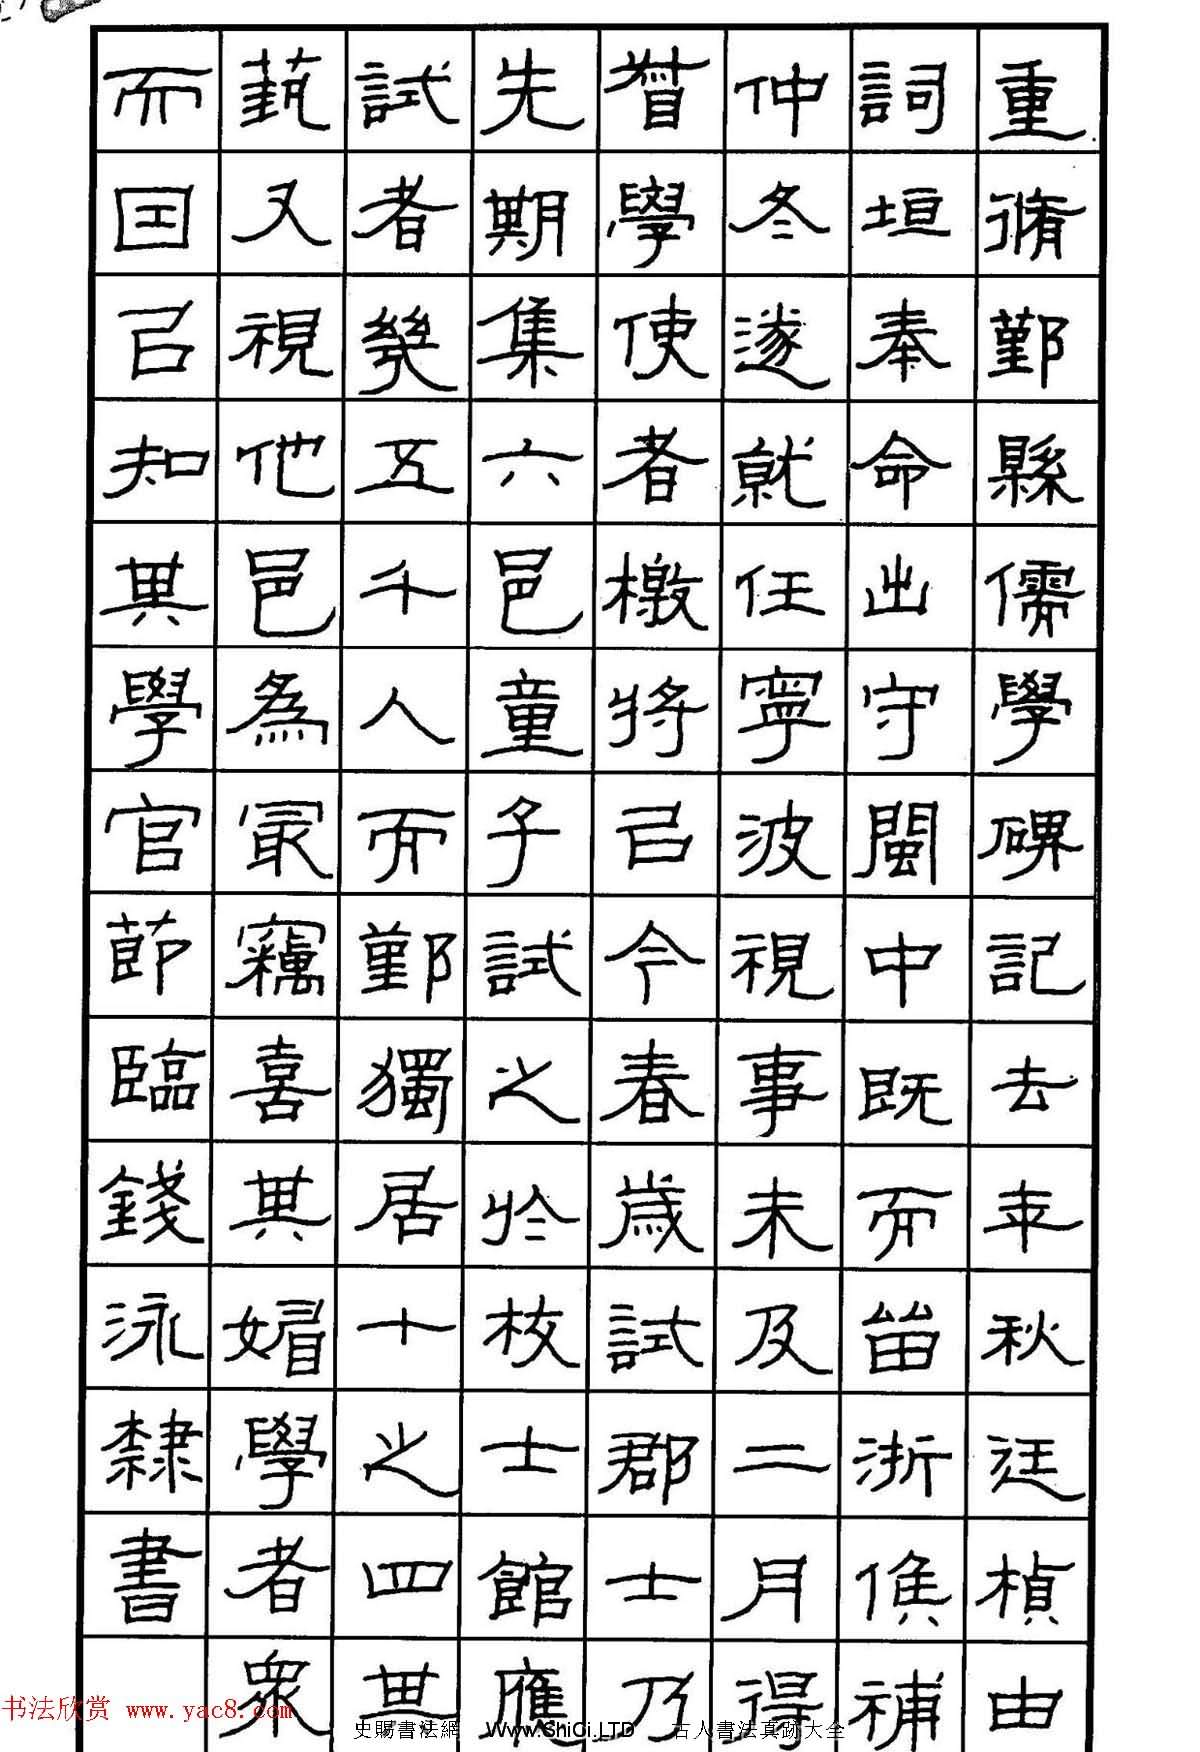 重脩鄞縣儒學碑記去年秋廷楨由
詞垣奉命出守閩中既而留浙矦補
仲冬遂就任寧波視事未及二月得
督學使者檄将㠯今春歲試郡士乃
先期集六邑童子試之於校士館應
試者幾五千人而鄞獨居十之四其
蓺又視他邑為冣竊喜其媚學者衆
而因㠯知其學官節臨錢泳隸書
书法欣赏 www.yac8.com
史賜書法網 Www.ShiCi.LTD 古人書法真跡大全